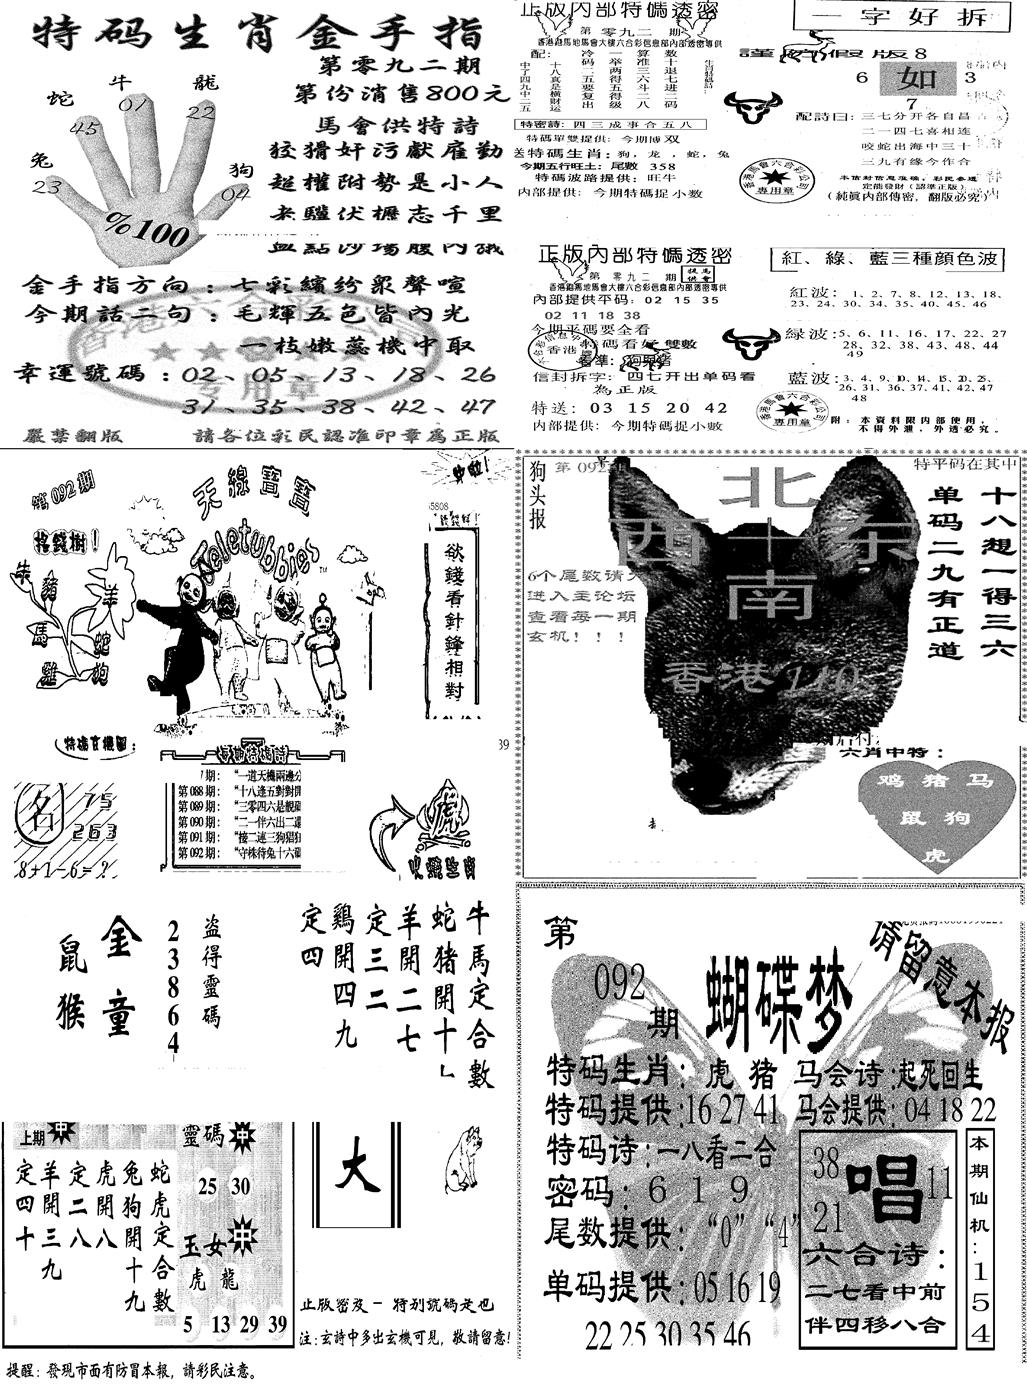 特码生肖金手指
第零九二期
第份消售800元
馬會供特詩
狡猾奸污獻雇勤
超權附勢是小人
老驥伏櫪志千里
牛
蛇
龍
兔
狗
01
45
22
23
04
%100
金手指方向：七彩繽紛眾聲喧
今期話二句：毛輝五色皆內光
一枝嫩蕊機中取
幸運號碼：02、05、13、18、26
31、35、38、42、47
嚴禁翻版
請各位彩民認准印章為正版
正版内部特碼透密
第零九二期
香港跑馬地馬會大樓六合彩信息部內部透密專供
配：
特密詩：四三成事合五八
特碼單雙提供：今期博双
送特碼生肖：狗，龙，蛇，兔
今期五行旺土：尾數 358
特碼波路提供：旺牛
内部提供：今期特碼捉小数
一字好拆
謹防假版8
6
如
3
7
配詩曰：三七分开各自昌
二一四七喜相连
咬蛇出海中三十
三九有緣今作合
香港馬會六合彩公司
專用章
定能發財(認準正版)
(純眞內部傳密，翻版必究)
正版内部特碼透密
第零九二期
香港跑馬地馬會大樓六合彩信息部內部透密專供
内部提供平码：02 15 35
02 11 18 38
今期平碼要全看
特碼看好雙數
信封拆字：四七开出单码看
為正版
特送：03 15 20 42
内部提供：今期特碼捉小數
紅、綠、藍三種顏色波
紅波：1、2、7、8、12、13、18、
23、24、30、34、35、40、45、46
緑波：5、6、11、16、17、22、27
28、32、38、43、48、44
49
藍波：3、4、9、10、14、15、20、25、
26、31、36、37、41、42、47
48
專用章
附：本資料限内部使用，
不得外泄，外透必究。
第092期
天線寶寶
Teletubbies
搖錢樹！
牛
豬
羊
馬
蛇
雞
狗
欲錢看針鋒相對
特碼玄機圖：
每期特碼詩
期：“一道天機兩邊公
第088期：“十八逢五對對開
第089期：“三零四六是靚碼
第090期：“二一伴六出二
第091期：“接二連三狗猖狂
第092期：“守株待兔十六
名
75
263
8+1-6=?
虎
火燒生肖
狗头报
第092期
特平码在其中
北
西十东
南
香港
十八想一得三六
单码二九有正道
6个尾数请
进入主论坛
查看每一期
玄机！！！
六肖中特：
鸡 猪 马
鼠 狗
虎
金童
鼠猴
盜得靈碼
23864
牛馬定合數
蛇豬開十
羊開二七
定三二
鷄開四九
定四
上期
中
蛇虎定合數
兔狗開十九
虎開八
定二八
羊開三九
定四十
靈碼
中
25 30
玉女
中
虎 龍
5 13 29 39
大
正版密技一特别號碼是也
注：玄詩中多出玄機可見，敬請留意！
提醒：發現市面有防冒本報，請彩民注意。
第
092
期
蝴蝶梦
请留意本报
特码生肖：虎 猪
马会诗：起死回生
特码提供：16 27 41
马会提供：04 18 22
特码诗：一八看二合
密码：6 1 9
尾数提供：“0”“4”
单码提供：05 16 19
22 25 30 35 46
38
唱
11
21
六合诗：
二七看中前
伴四移八合
本期仙机：154